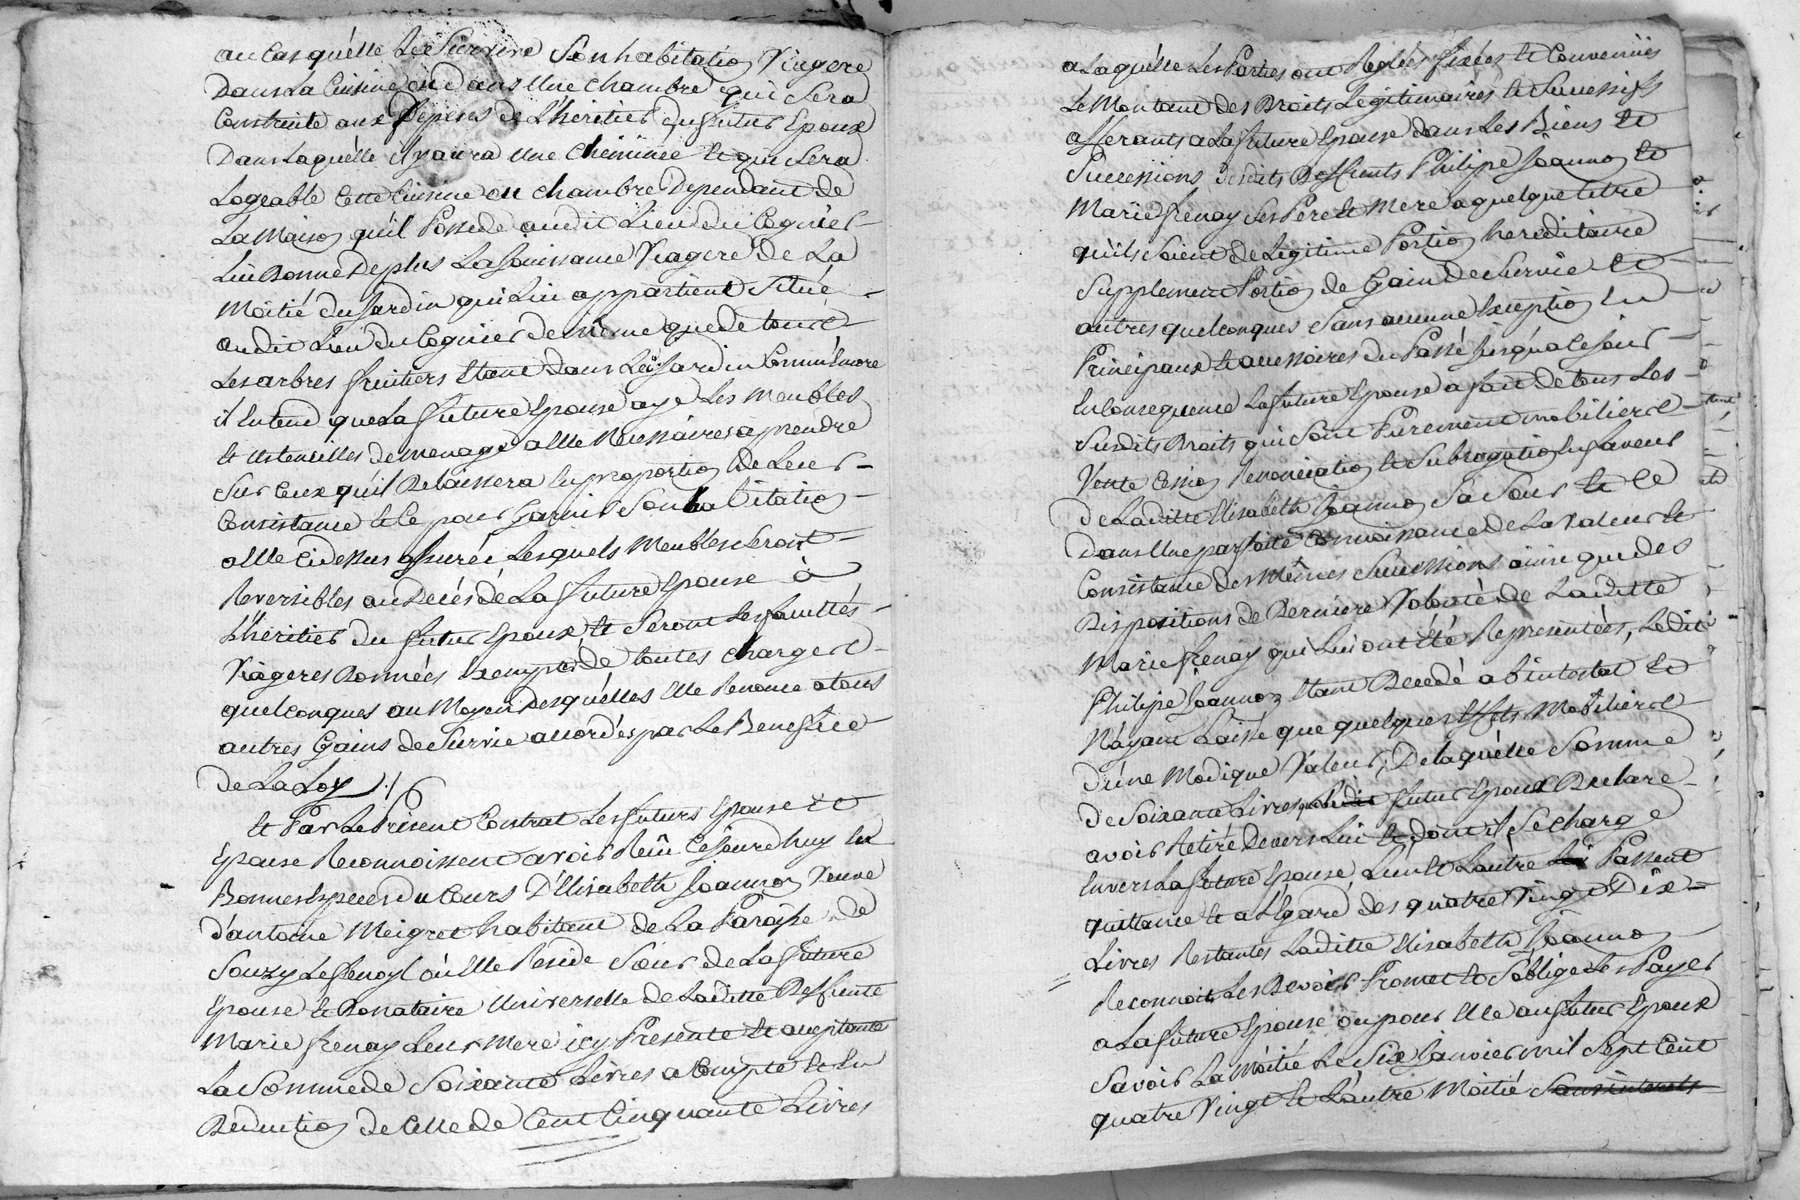 au cas quélle Le Survive Son habitation Viagere
Dans La Cuisine ou dans Une chambre qui Sera
Construite aux Dépens de L'héritier du futur Epoux
Dans Laquélle il y aura Une Cheminée et qui Sera
Logeable Cette Cuisine ou chambre Dépendant de
La Maison qu'il Possede audit Lieu du Cognier
Lui Donne De plus La Jouissance Viagere de La
Moitié du Jardin qui Lui appartient Situé
audit Lieu du Cognier de même que de tous
Les arbres fruitiers Etant dans Le Jardin
il Entend que La future Epouse aye Les Meubles
et Ustencilles de menage a Elle Necessaires a prendre
Sur Ceux qu'il Delaissera En proportion De Leur
Consistance et Ce pour Garnir Son habitation
a Elle Cidessus assurée Lesquels Meubles Seront
Reversibles au Decés de La future Epouse à
L'héritier du futur Epoux et Seront Les facultés
Viageres Données Exemptes de toutes charges
quélconques au Moyen Desquélles Elle Renonce a tous
autres Gains de Survie accordés par Le Benefice
de La Loy ./.
Et Par Le Présent Contrat Les futurs Epoux et
Epouse Reconnoissent avoir Reçû Cejourdhuy En
Bonnes Especes du Cours D'Elisabeth Joannon Veuve
d'antoine Meigret habitant de La Paroisse de
Souzy Le fenoyl où Elle Reside Sœur de La future
Epouse et Donataire Universelle de Laditte Deffunte
Marie frenay Leur Mere icy Presente et acceptante
La Somme de Soixante Livres a Compte et En
Deduction de Celle de Cent Cinquante Livres
a Laquélle Les Parties ont Réglées fixées et Convenües
Le Montant des Droits Légitimaires et Successifs
afferants a La future Epouse dans Les Biens et
Successions desdits Deffunts Philipe Joannon et
Marie frenay Ses Pere et Mere a quelque titre
qu'ils Soient de Légitime Portion hereditaire
Supplement Portion de Gain de Survie et
autres quelconques Sans aucune Exception En
Principaux et accessoires du Passé jusqu'a Ce Jour
En Consequence La future Epouse a fait de tous Les
Susdits Droits qui Sont Purement mobiliers
Vente Cession Renonciation et Subrogation En faveur
de Laditte Elisabeth Joannon Sa Sœur et Ce
Dans Une parfaite Connoissance de La Valeur et
Consistance des Mêmes Successions ainsi que des
Dispositions de Derniere Volonté de Laditte
Marie frenay qui Lui ont été Representées, Ledit
Philipe Joannon Etant Decedé abintestat et
N'ayant Laissé que quelques Effets Mobiliers
d'une Modique Valeur, De Laquélle Somme
de Soixante Livres Ledit futur Epoux Declare
avoir Retiré Devers Lui et dont il Se charge
Envers La future Epouse L'un et L'autre Passent
quittance et a L'égard des quatre Vingt Dix
Livres Restantes Laditte Elisabeth Joannon
Reconnoit Les Devoir Promet et S'oblige Les Payer
a La future Epouse ou pour Elle au futur Epoux
Savoir La Moitié Le Six Janvier mil Sept Cent
quatre Vingt et L'autre Moitié Sans interets